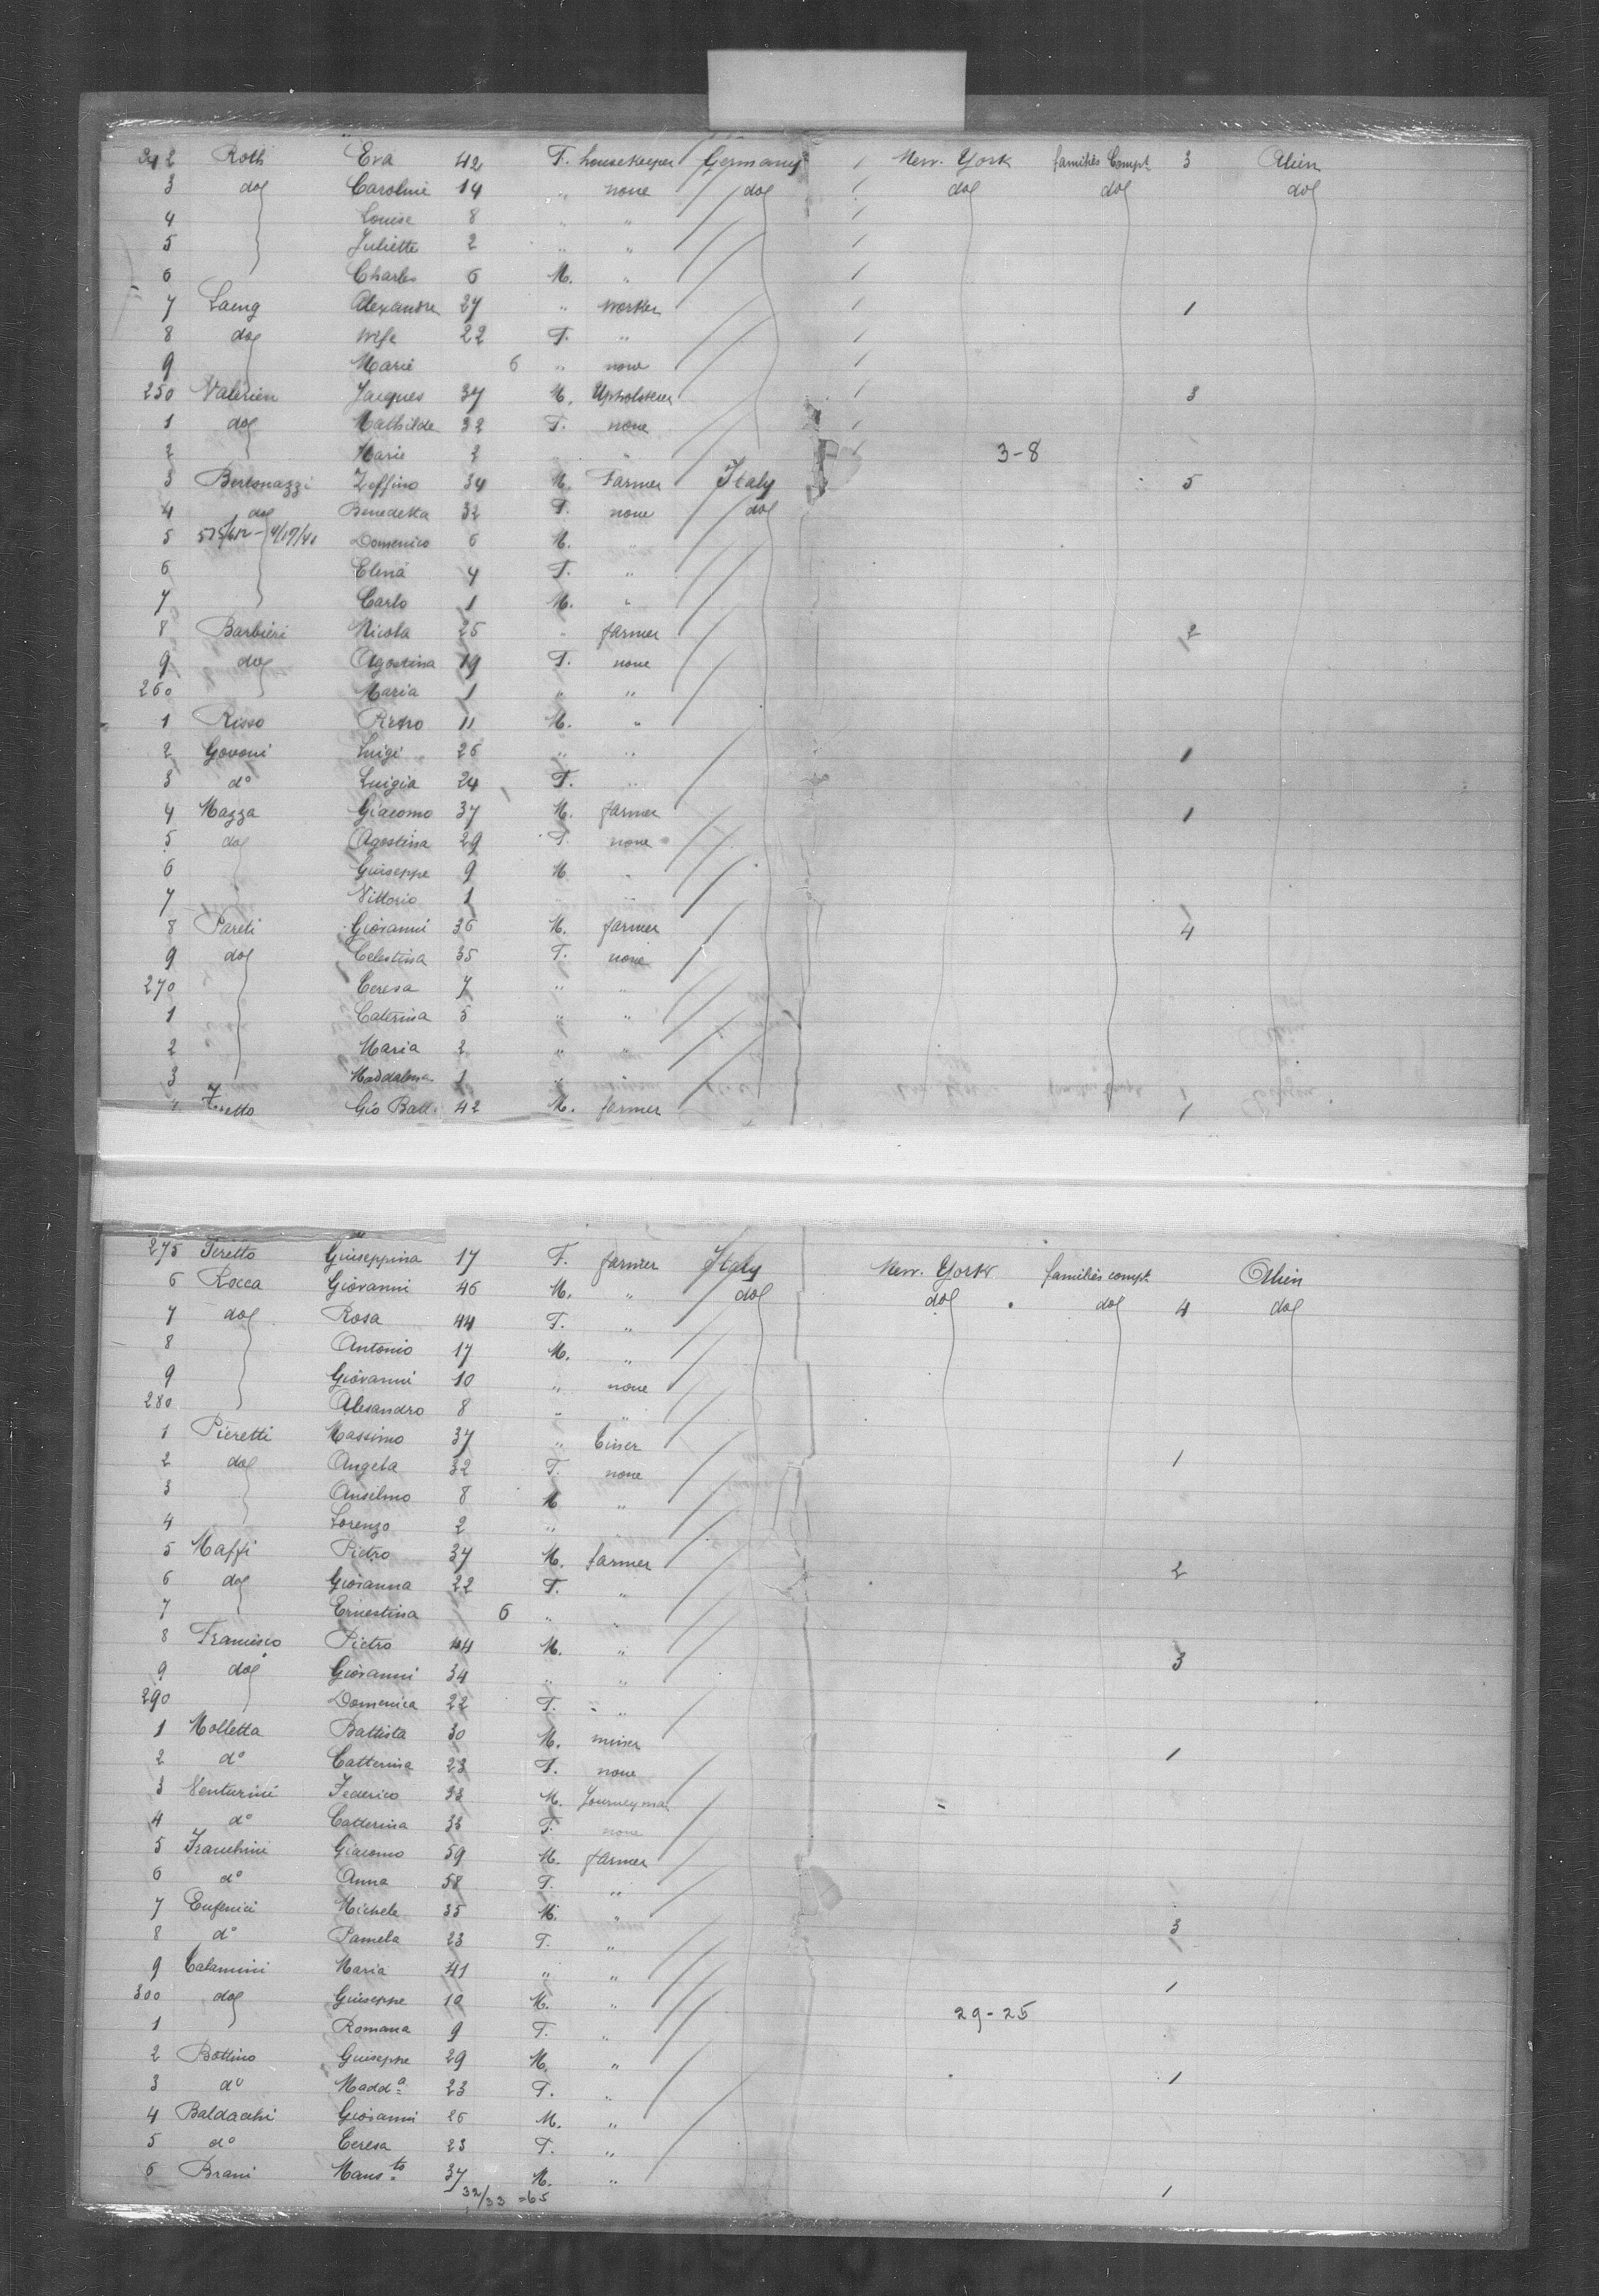 242 Roth Eva 42 F. housekeeper Germany New. York families Compt 3 Alien
3 do Caroline 14 " none do do do do
4 Louise 8 " "
5 Juliette 2 " "
6 Charles 6 M. "
7 Laeng Alexandre 27 " worker 1
8 do wife 22 F. "
9 Marie 6 " none
250 Valérien Jacques 37 M. Upholsterer 3
1 do Mathilde 32 F. none
2 Marie 2 " " 3-8
3 Zeffino 34 M. Farmer Italy 5
4 do Benedetta 32 F. none do
5 Domenico 6 M. "
6 Elena 4 F. "
7 Carlo 1 M. "
8 Barbieri Nicola 25 " farmer 2
9 do Agostina 19 F. none
260 Maria 1 " "
1 Risso Pietro 11 M. "
2 Govoni Luigi 26 " " 1
3 do Luigia 24 F. "
4 Mazza Giacomo 37 M. farmer 1
5 do Agostina 29 F. none
6 Guiseppe 9 M "
7 Vittorio 1 " "
8 Pareti Giovanni 36 M. farmer 4
9 do Celestina 35 F. none
270 Teresa 7 " "
1 Caterina 5 " "
2 Maria 2 " "
3 Maddalena 1 "
Gio Batt. 42 M. farmer 1
275 Feretto Giuseppina 17 F. farmer Italy New. York families compt. Alien
6 Rocca Giovanni 46 M. " do do do 4 do
7 do Rosa 44 F. "
8 Antonio 17 M. "
9 Giovanni 10 " none
280 Alesandro 8 " "
1 Pieretti Massimo 37 "
2 do Angela 32 F. none 1
3 Anselmo 8 M "
4 Lorenzo 2 "
5 Maffi Pietro 37 M. farmer 2
6 do Giovanna 22 F. "
7 Ernestina 6 " "
8 Francisco Pietro 44 M. " 3
9 do Giovanni 34 " "
290 Domenica 22 F. "
1 Molletta Battista 30 M. miner 1
2 do Catterina 23 F. none
3 Venturini Federico 33 M. Journeyman
4 do Catterina 33 F. none
5 Franchini Giacomo 59 M. farmer
6 do Anna 58 F. "
7 Eufenici Michele 35 M. " 3
8 do Pamela 23 F. "
9 Calamini Maria 41 " " 1
300 do Guiseppe 10 M. " 29-25
1 Romana 9 F. "
2 Bottino Guiseppe 29 M. "
3 do Madda 23 F. " 1
4 Baldacchi Giovanni 26 M. "
5 do Teresa 23 F. "
6 Brani 37 M. " 1
32/33 =65